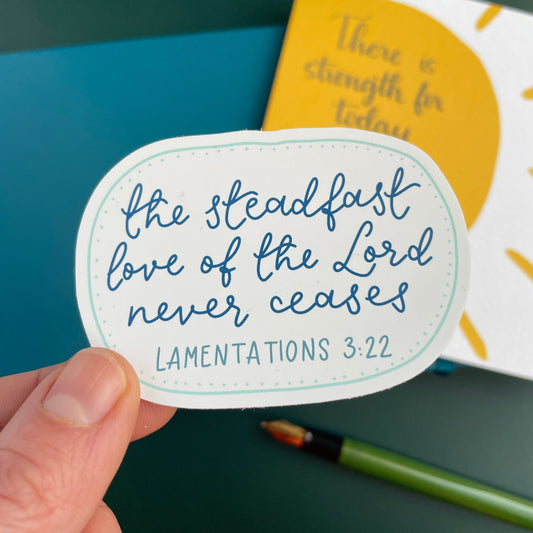 There is
strength for
today
the steadfast
love of the Lord
never ceases
LAMENTATIONS 3:22